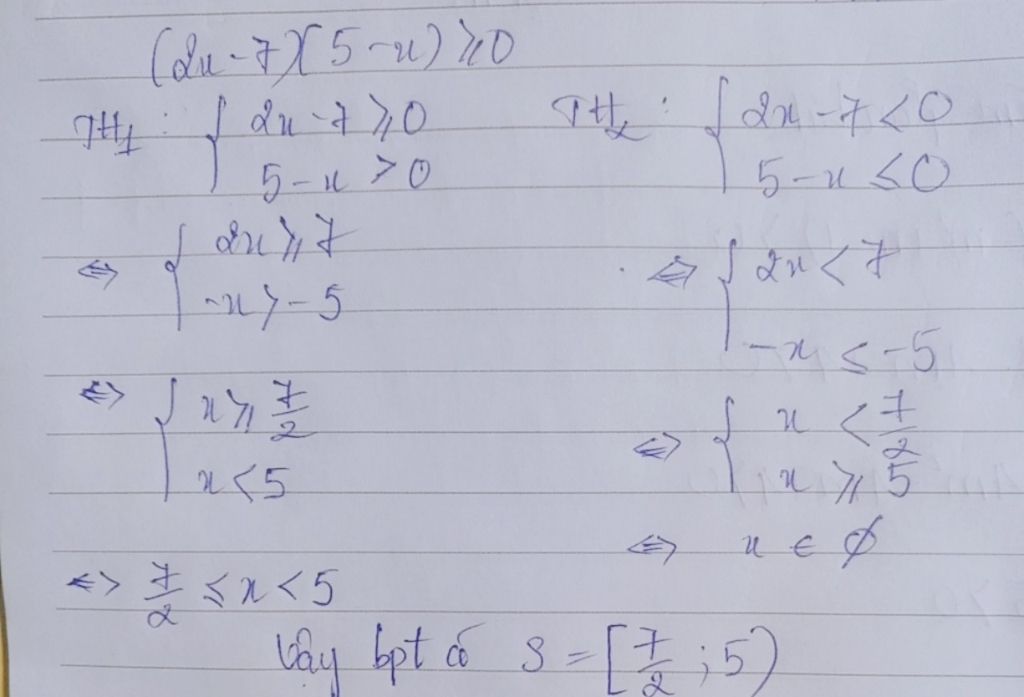 (2x-7)(5-x) ⩾ 0
TH1: { 2x-7 ⩾ 0
5-x > 0
⇔ { 2x ⩾ 7
-x > -5
⇔ { x ⩾ 7/2
x < 5
⇔ 7/2 ≤ x < 5
TH2: { 2x-7 < 0
5-x ≤ 0
⇔ { 2x < 7
-x ≤ -5
⇔ { x < 7/2
x ⩾ 5
⇔ x ∈ ∅
Vậy bpt có S = [7/2; 5)